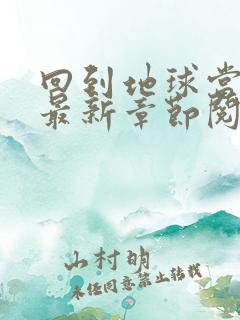 回到地球当
最新章节阅
山村明
未经同意禁止转载